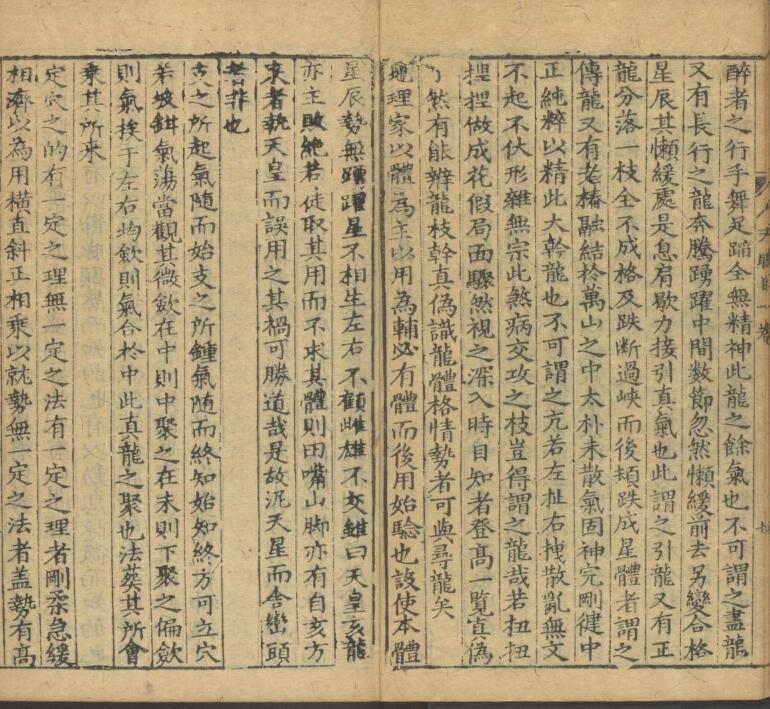 醉者之行手舞足蹈全無精神此龍之餘氣也不可謂之盡龍
又有長行之龍奔騰踴躍中間数節忽然懶緩前去另變合格
星辰其懶緩處是息肩歇力接引直氣也此謂之引龍又有正
龍分落一枝全不成格及跌断過峽而後頓跌成星體者謂之
傳龍又有老椿融結於萬山之中太朴未散氣固神完剛健中
正純粹以精此大幹龍也不可謂之亢若左扯右拽散亂無文
不起不伏形雜無宗此煞病交攻之枝豈得謂之龍哉若扭扭
捏捏做成花假局面驟然視之深入時目知者登高一覧真偽
了然有能辨龍枝幹真偽識龍體格情勢者可與尋龍矣
地理家以體為主以用為輔必有體而後用始驗也設使本體
星辰勢無踴躍星不相生左右不顧雌雄不交雖曰天皇亥龍
亦主敗絶若徒取其用而不求其體則田嘴山脚亦有自亥方
來者執天皇而誤用之其禍可勝道哉是故泥天星而舎巒頭
者非也
支之所起氣随而始支之所鍾氣随而終知始知終方可立穴
若坡鉗氣蕩當觀其微歛在中則中聚之在末則下聚之偏歛
則氣挨于左右均歛則氣合於中此真龍之聚也法葬其所會
乘其所来
定穴之的有一定之理無一定之法有一定之理者剛柔急緩
相濟以為用横直斜正相乘以就勢無一定之法者蓋勢有高